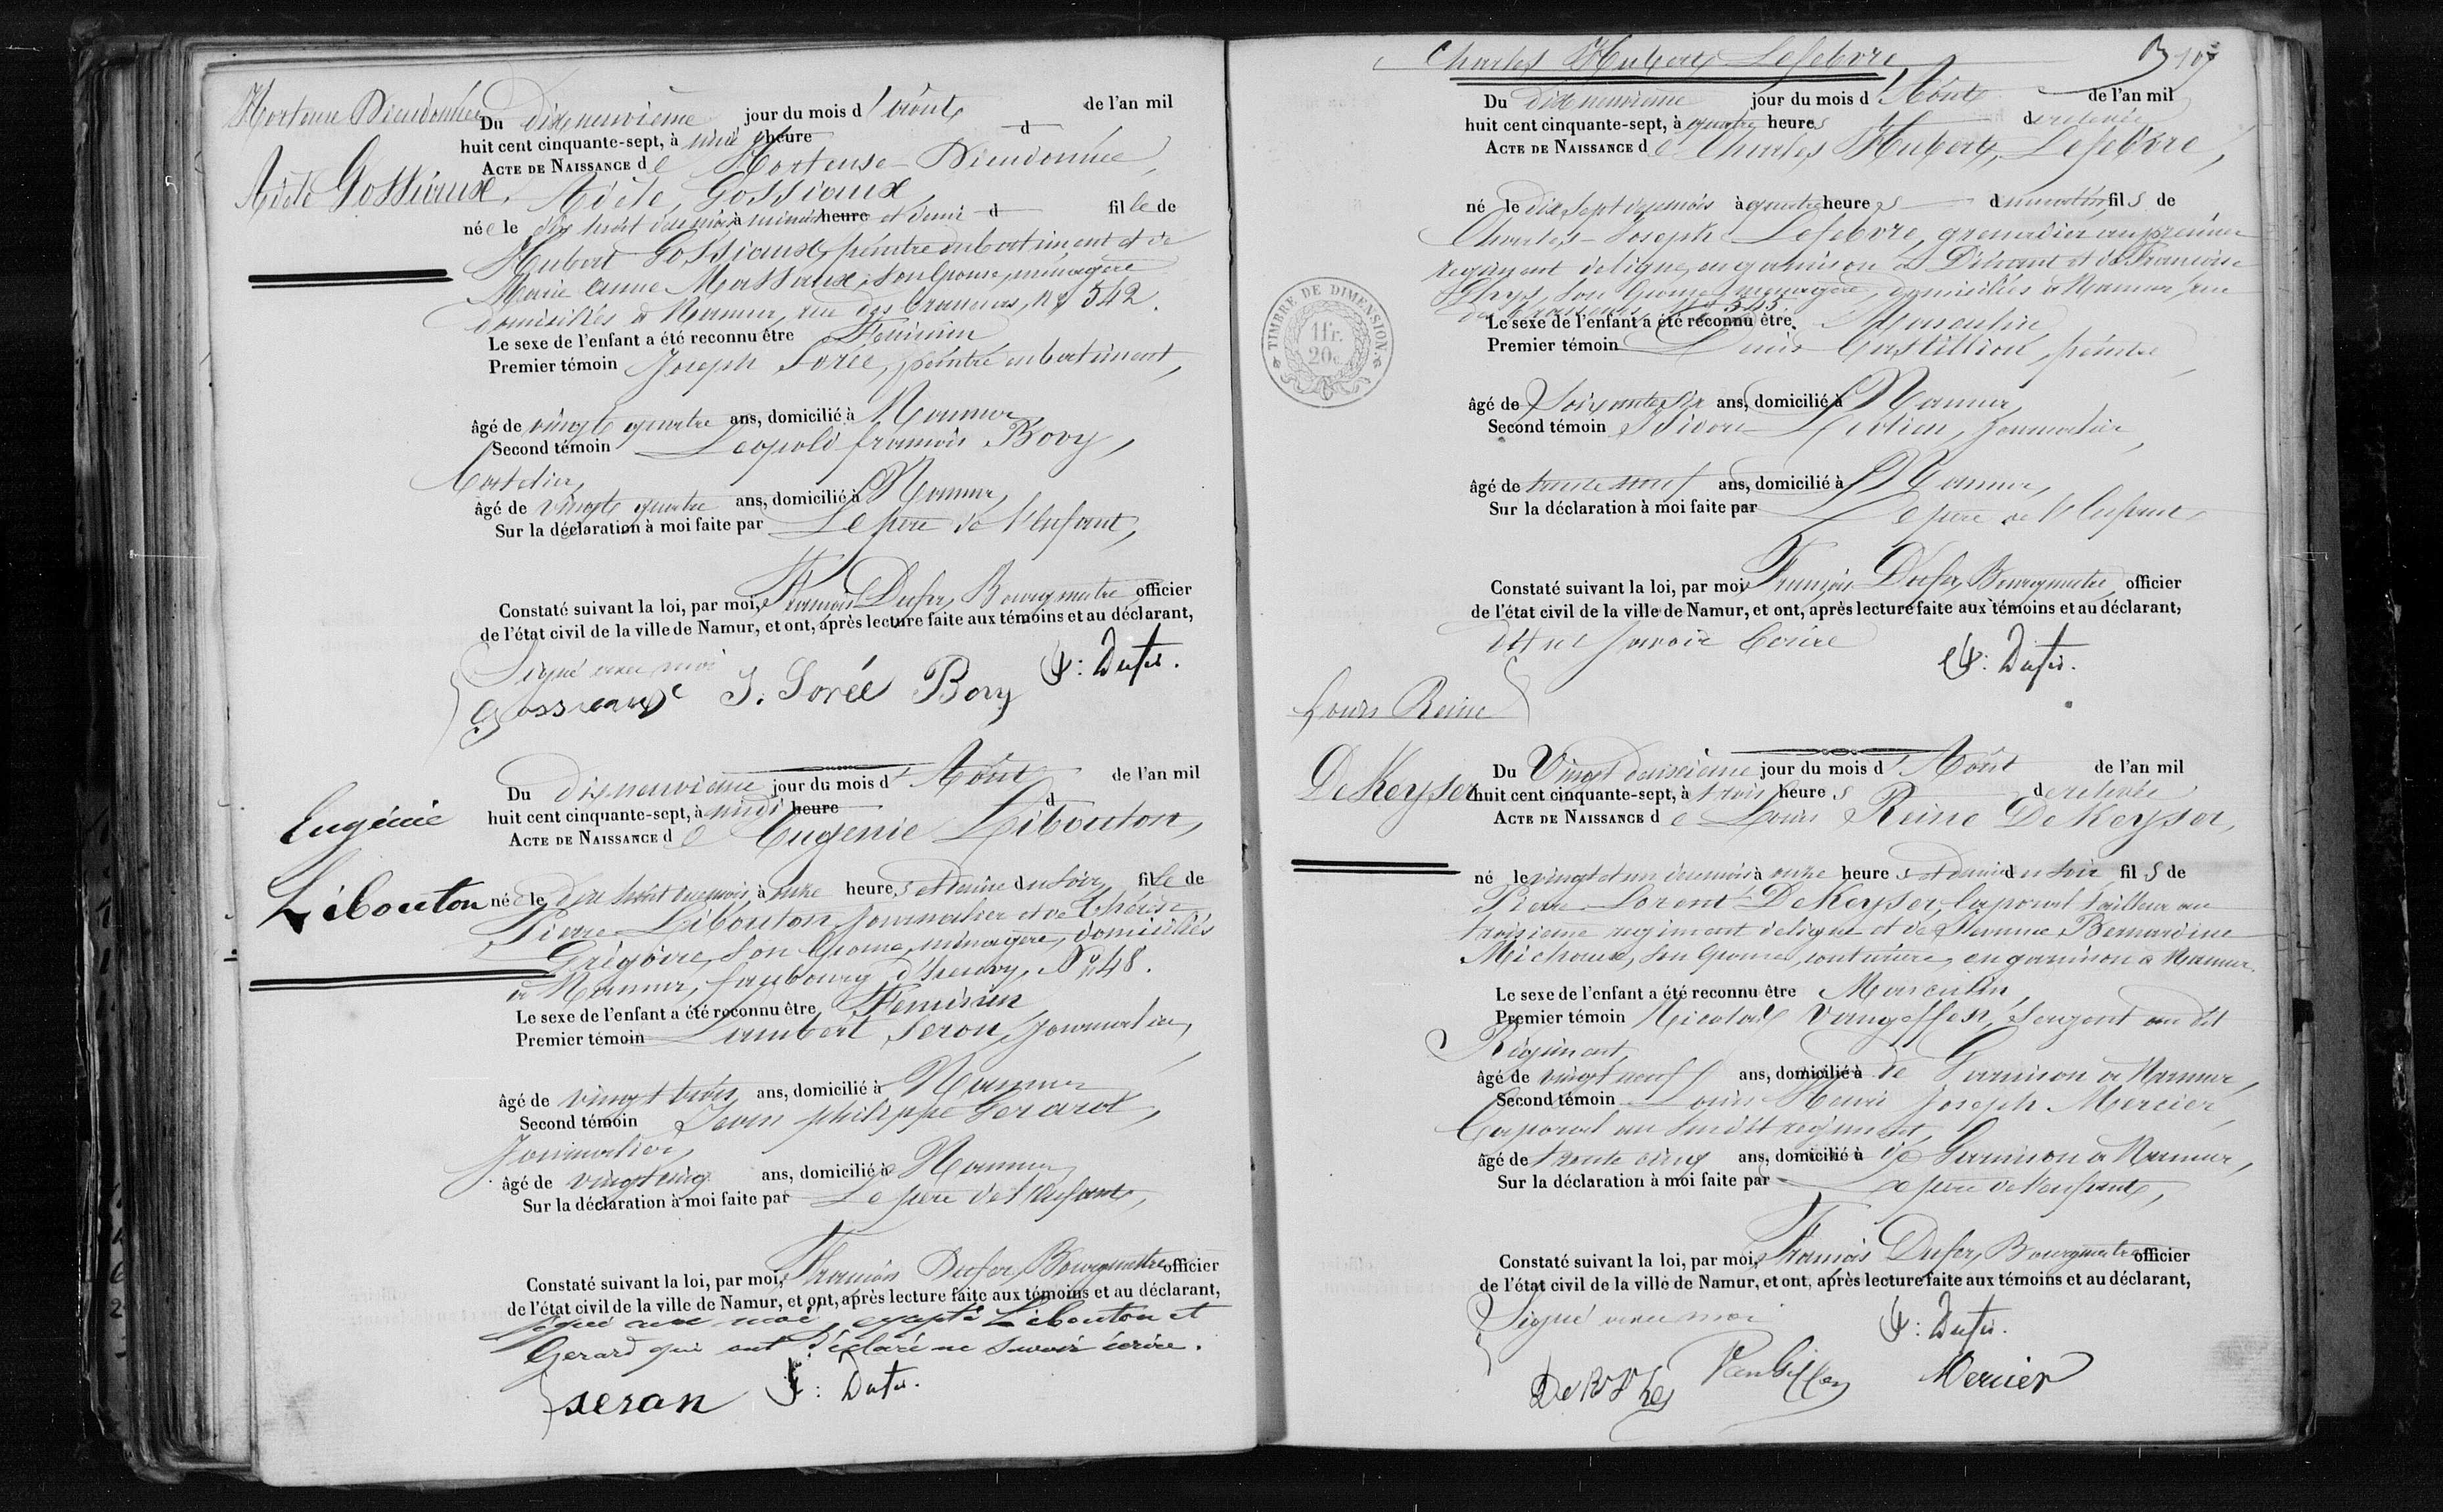 Hortense Dieudonnée
Adèle Gossiaux.
Du dixneuvième jour du mois d'Août de l'an mil
huit cent cinquante-sept, à midi heure d
ACTE DE NAISSANCE de Hortense Dieudonnée
Adèle Gossiaux,
née le dix huit du mois, à minuit heure et demi d fille de
Hubert Gossiaux, peintre en batiment et de
Marie Anne Massaux, son épouse, ménagère
domiciliés à Namur, rue des Brasseurs, No 542.
Le sexe de l'enfant a été reconnu être Féminin
Premier témoin Joseph Sorée, peintre en batiment,
âgé de vingt quatre ans, domicilié à Namur
Second témoin Léopold françois Bovy,
Batelier,
âgé de vingt quatre ans, domicilié à Namur,
Sur la déclaration à moi faite par Le père de l'enfant,
Constaté suivant la loi, par moi, François Dufer, Bourgmestre officier
de l'état civil de la ville de Namur, et ont, après lecture faite aux témoins et au déclarant,
Signé avec moi
Gossiaux J. Sorée Bovy F: Dufer.
Eugénie
Libouton
Du dixneuvième jour du mois d'Août de l'an mil
huit cent cinquante-sept, à midi heure d
ACTE DE NAISSANCE de Eugenie Libouton,
née le dix huit du mois, à onze heures et demie du soir fille de
Pierre Libouton, journalier et de Thérèse
Grégoire, son épouse, ménagère, domiciliés
à Namur, faubourg d'heuvy, No 48.
Le sexe de l'enfant a été reconnu être Féminin
Premier témoin Lambert Seron, journalier,
âgé de vingt trois ans, domicilié à Namur
Second témoin Jean philippe Gerard,
Journalier,
âgé de vingt cinq ans, domicilié à Namur
Sur la déclaration à moi faite par Le père de l'enfant,
Constaté suivant la loi, par moi, François Dufer, Bourgmestre officier
de l'état civil de la ville de Namur, et ont, après lecture faite aux témoins et au déclarant,
signé avec moi, excepté Libouton et
Gerard qui ont déclaré ne savoir écrire.
seran F: Dufer.
Charles Hubert Lefebvre
107
Du dixneuvième jour du mois d'Août de l'an mil
huit cent cinquante-sept, à quatre heures de relevée
ACTE DE NAISSANCE de Charles Hubert Lefebvre,
né le dix sept du mois à quatre heures du matin fils de
Charles Joseph Lefebvre, grenadier au premier
regiment de ligne, en garnison à Dinant et de Françoise
Thys, son épouse, menagère, domiciliés à Namur, rue
des Brasseurs, No 545
Le sexe de l'enfant a été reconnu être Masculin
Premier témoin Louis Castillion, peintre
âgé de Soixante six ans, domicilié à Namur,
Second témoin Isidore, journalier,
âgé de trente neuf ans, domicilié à Namur,
Sur la déclaration à moi faite par Le père de l'enfant
Constaté suivant la loi, par moi, François Dufer, Bourgmestre officier
de l'état civil de la ville de Namur, et ont, après lecture faite aux témoins et au déclarant,
dit ne savoir écrire
F: Dufer.
TIMBRE DE DIMENSION
1 fr.
20c
Louis Reine
DeKeyser
Du Vingt deuxième jour du mois d'Août de l'an mil
huit cent cinquante-sept, à trois heures de relevée
ACTE DE NAISSANCE de Louis Reine DeKeyser,
né le vingt et un du mois à onze heures et demie du soir fils de
Pierre Lorent DeKeyser, Caporal tailleur au
troisieme regiment de ligne et de Bernardine
Michaux, son épouse, couturière, en garnison à Namur.
Le sexe de l'enfant a été reconnu être Masculin,
Premier témoin Nicolas Vangeffen, Sergent au dit
Régiment,
âgé de vingt neuf ans, domicilié à de Garnison à Namur,
Second témoin Louis Henri Joseph Mercier,
Caporal au susdit regiment,
âgé de trente cinq ans, domicilié à de Garnison à Namur,
Sur la déclaration à moi faite par Le père de l'enfant,
Constaté suivant la loi, par moi, François Dufer, Bourgmestre officier
de l'état civil de la ville de Namur, et ont, après lecture faite aux témoins et au déclarant,
Signé avec moi F: Dufer.
VanGeffen Mercier